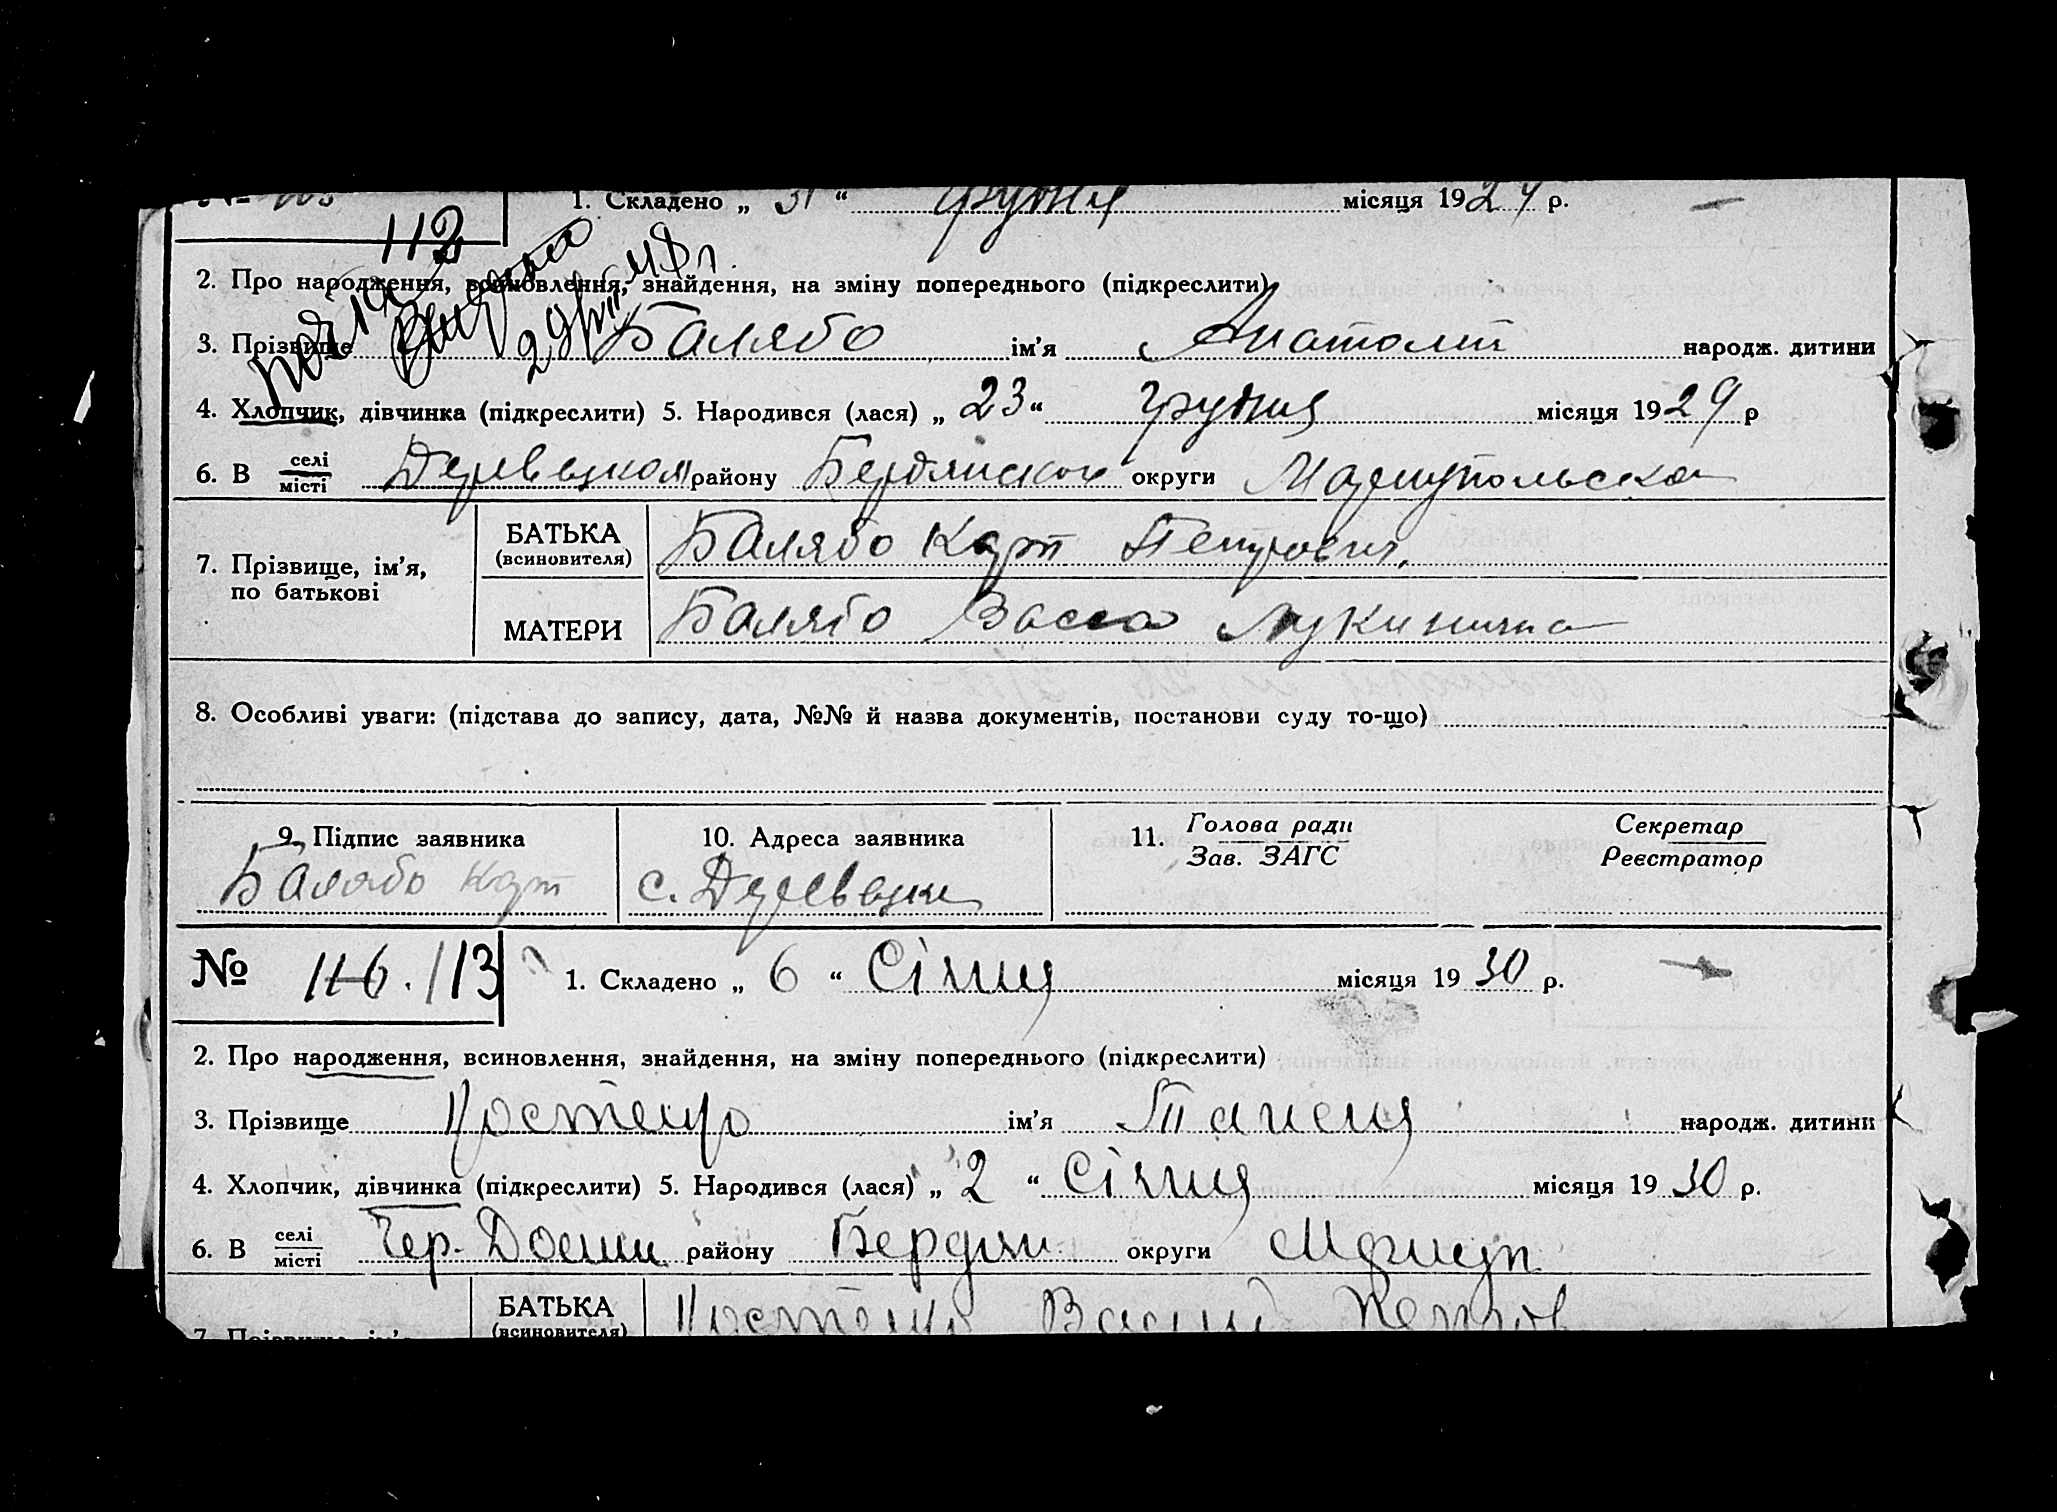 1. Складено „ 31 “ грудня місяця 1929 р.
112
2. Про народження, всиновлення, знайдення, на зміну попереднього (підкреслити)
3. Прізвище Балябо ім’я Анатолій народж. дитини
4. Хлопчик, дівчинка (підкреслити) 5. Народився (лася) „ 23 “ грудня місяця 1929 р
6. В селі/місті району Бердянсько округи Маріупольсько
7. Прізвище, ім’я, по батькові
БАТЬКА (всиновителя) Балябо Карп Петрович.
МАТЕРИ Балябо Васса Лукинична
8. Особливі уваги: (підстава до запису, дата, №№ й назва документів, постанови суду то-що)
9. Підпис заявника 10. Адреса заявника 11. Голова ради/Зав. ЗАГС Секретар/Реєстратор
Балябо Карп с.
№ 116. 113 1. Складено „ 6 “ Січня місяця 1930 р.
2. Про народження, всиновлення, знайдення, на зміну попереднього (підкреслити)
3. Прізвище Костенко ім’я народж. дитини
4. Хлопчик, дівчинка (підкреслити) 5. Народився (лася) „ 2 “ Січня місяця 1930 р.
6. В селі/місті Чер. району Бердян округи Мариуп
7. Прізвище, ім’я,
БАТЬКА (всиновителя) Костенко Петров